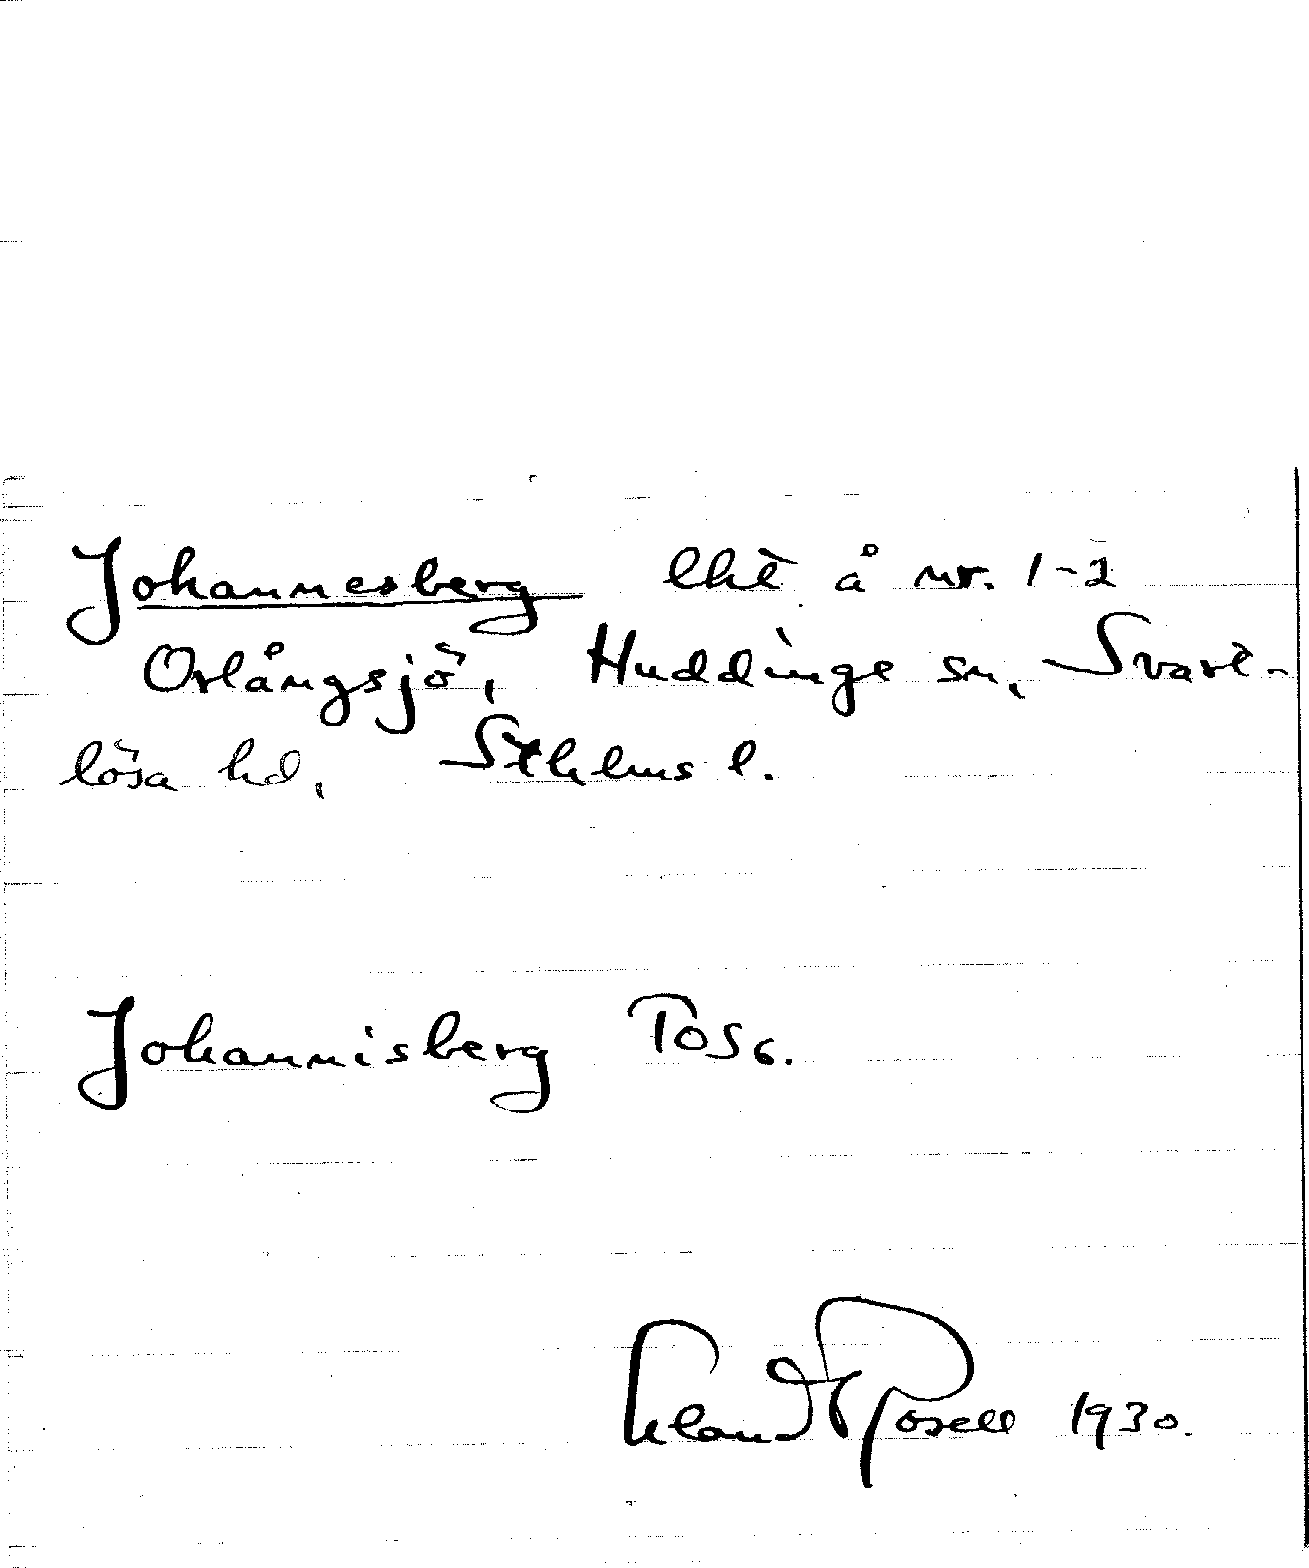 Johannesberg lht å nr. 1-2
Orlångsjö, Huddinge sn, Svart-
lösa hd, Sthlms l.
Johannisberg TOS6.
Erland Rosell 1930.